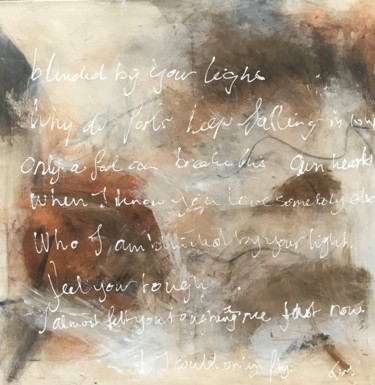 blinded by your light
Why do fools keep falling in love
Only a fool can break his own heart
When I know you love somebody else
Who I am blinded by your light.
feel your
I almost felt you touching me just now.
if I could only fly.